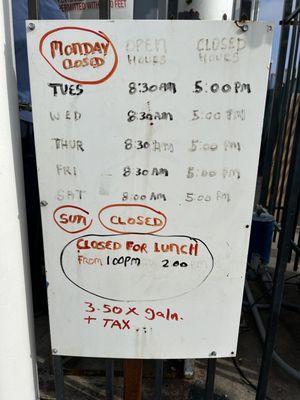 PERMITTED WITHIN 50 FEET
MONDAY CLOSED OPEN HOURS CLOSED HOURS
TUES 8:30AM 5:00PM
WED 8:30AM 5:00PM
THUR 8:30AM 5:00PM
FRI 8:30AM 5:00PM
SAT 8:00AM 5:00PM
SUN CLOSED
CLOSED FOR LUNCH
FROM 1:00PM 2:00
3.50 x galn.
+ TAX